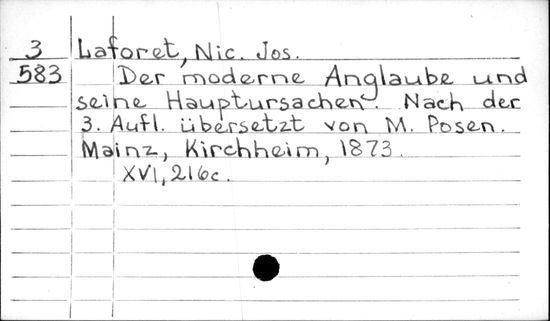 3 Laforet, Nic. Jos.
583 Der moderne Anglaube und
seine Hauptursachen. Nach der
3. Aufl. übersetzt von M. Posen.
Mainz, Kirchheim, 1873.
XVI, 216c.